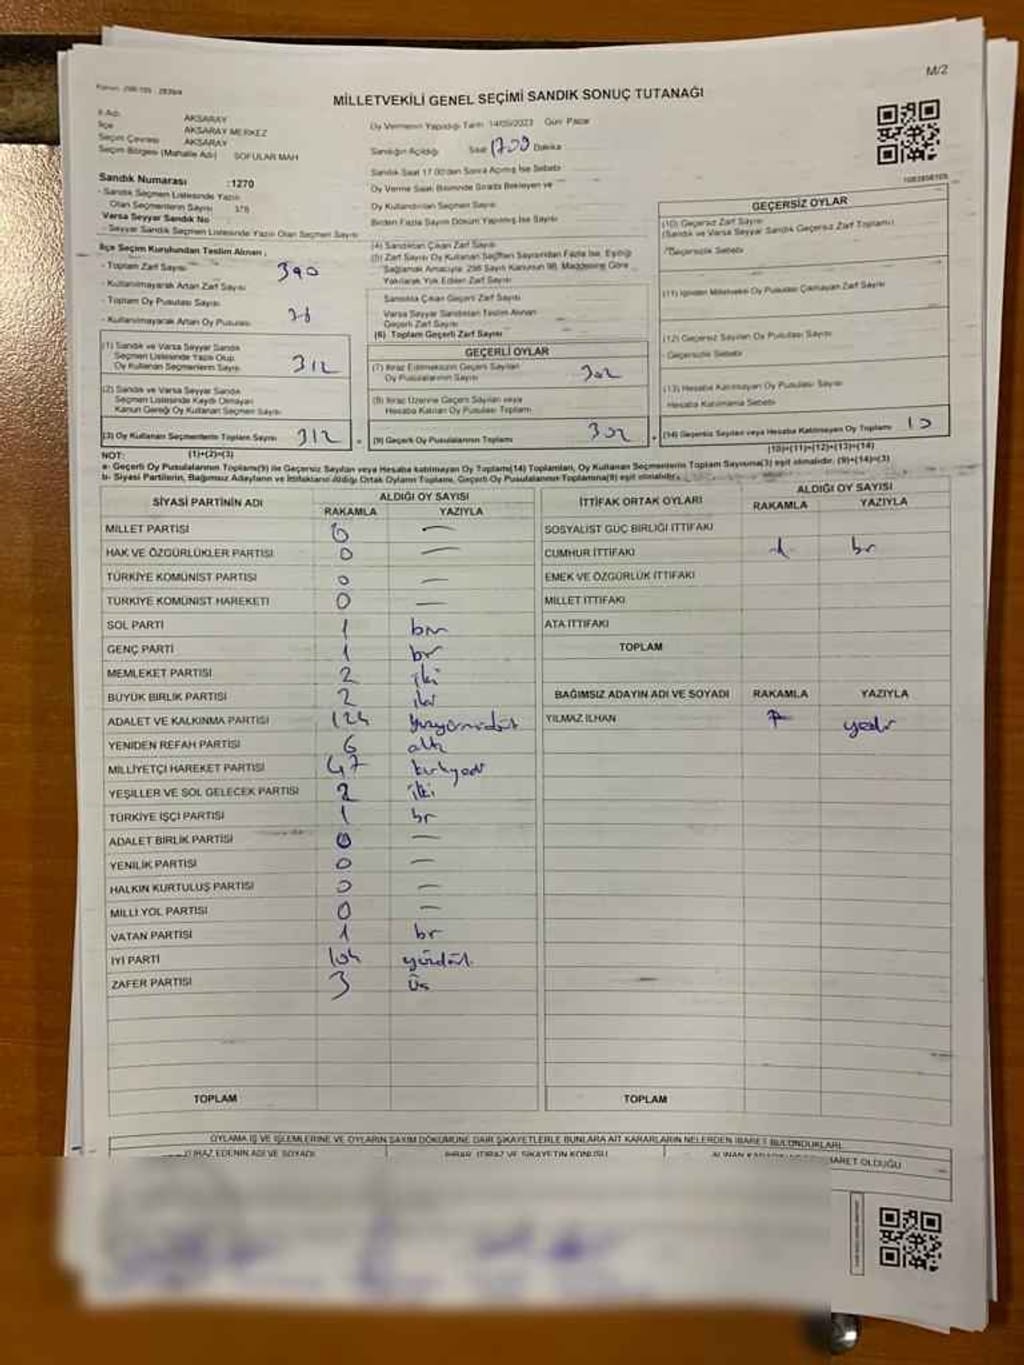 M/2
MİLLETVEKİLİ GENEL SEÇİMİ SANDIK SONUÇ TUTANAĞI
İl Adı AKSARAY
İlçe AKSARAY MERKEZ
Seçim Çevresi AKSARAY
Seçim Bölgesi (Mahalle Adı) SOFULAR MAH
Oy Vermenin Yapıldığı Tarih 14/05/2023 Gün Pazar
Sandığın Açıldığı Saat Dakika
Sandık Saat 17:00'den Sonra Açılmış İse Sebebi
Oy Verme Saati Bitiminde Sırada Bekleyen ve
Oy Kullandırılan Seçmen Sayısı
Birden Fazla Sayım Döküm Yapılmış İse Sayısı
Sandık Numarası :1270
- Sandık Seçmen Listesinde Yazılı
Olan Seçmenlerin Sayısı 378
Varsa Seyyar Sandık No
- Seyyar Sandık Seçmen Listesinde Yazılı Olan Seçmen Sayısı
İlçe Seçim Kurulundan Teslim Alınan :
- Toplam Zarf Sayısı 390
- Kullanılmayarak Artan Zarf Sayısı
- Toplam Oy Pusulası Sayısı
- Kullanılmayarak Artan Oy Pusulası
(1) Sandık ve Varsa Seyyar Sandık
Seçmen Listesinde Yazılı Olup
Oy Kullanan Seçmenlerin Sayısı 312
(2) Sandık ve Varsa Seyyar Sandık
Seçmen Listesinde Kaydı Olmayan
Kanun Gereği Oy Kullanan Seçmen Sayısı
(3) Oy Kullanan Seçmenlerin Toplam Sayısı 312
(1)+(2)=(3)
(4) Sandıktan Çıkan Zarf Sayısı
(5) Zarf Sayısı Oy Kullanan Seçmen Sayısından Fazla İse, Eşitliği
Sağlamak Amacıyla, 298 Sayılı Kanunun 98. Maddesine Göre
Yakılarak Yok Edilen Zarf Sayısı
Sandıkta Çıkan Geçerli Zarf Sayısı
Varsa Seyyar Sandıktan Teslim Alınan
Geçerli Zarf Sayısı
(6) Toplam Geçerli Zarf Sayısı
GEÇERLİ OYLAR
(7) İtiraz Edilmeksizin Geçerli Sayılan
Oy Pusulalarının Sayısı 302
(8) İtiraz Üzerine Geçerli Sayılan veya
Hesaba Katılan Oy Pusulası Toplamı
(9) Geçerli Oy Pusulalarının Toplamı 302
GEÇERSİZ OYLAR
(10) Geçersiz Zarf Sayısı
(Sandık ve Varsa Seyyar Sandık Geçersiz Zarf Toplamı)
Geçersizlik Sebebi
(11) İçinden Milletvekili Oy Pusulası Çıkmayan Zarf Sayısı
(12) Geçersiz Sayılan Oy Pusulası Sayısı
- Geçersizlik Sebebi
(13) Hesaba Katılmayan Oy Pusulası Sayısı
Hesaba Katılmama Sebebi
(14) Geçersiz Sayılan veya Hesaba Katılmayan Oy Toplamı 10
(10)+(11)+(12)+(13)=(14)
NOT:
a- Geçerli Oy Pusulalarının Toplamı(9) ile Geçersiz Sayılan veya Hesaba katılmayan Oy Toplamı(14) Toplamları, Oy Kullanan Seçmenlerin Toplam Sayısına(3) eşit olmalıdır. (9)+(14)=(3)
b- Siyasi Partilerin, Bağımsız Adayların ve İttifakların Aldığı Oyların Toplamı, Geçerli Oy Pusulalarının Toplamına(9) eşit olmalıdır.
SİYASİ PARTİNİN ADI ALDIĞI OY SAYISI
RAKAMLA YAZIYLA
MİLLET PARTİSİ 0 —
HAK VE ÖZGÜRLÜKLER PARTİSİ 0 —
TÜRKİYE KOMÜNİST PARTİSİ 0 —
TÜRKİYE KOMÜNİST HAREKETİ 0 —
SOL PARTİ 1 bir
GENÇ PARTİ 1 bir
MEMLEKET PARTİSİ 2 iki
BÜYÜK BİRLİK PARTİSİ 2 iki
ADALET VE KALKINMA PARTİSİ 124 yüzyirmidört
YENİDEN REFAH PARTİSİ 6 altı
MİLLİYETÇİ HAREKET PARTİSİ 47 kırkyedi
YEŞİLLER VE SOL GELECEK PARTİSİ 2 iki
TÜRKİYE İŞÇİ PARTİSİ 1 bir
ADALET BİRLİK PARTİSİ 0 —
YENİLİK PARTİSİ 0 —
HALKIN KURTULUŞ PARTİSİ 0 —
MİLLİ YOL PARTİSİ 0 —
VATAN PARTİSİ 1 bir
İYİ PARTİ 104 yüzdört
ZAFER PARTİSİ 3 üç
TOPLAM
İTTİFAK ORTAK OYLARI ALDIĞI OY SAYISI
RAKAMLA YAZIYLA
SOSYALİST GÜÇ BİRLİĞİ İTTİFAKI
CUMHUR İTTİFAKI 1 bir
EMEK VE ÖZGÜRLÜK İTTİFAKI
MİLLET İTTİFAKI
ATA İTTİFAKI
TOPLAM
BAĞIMSIZ ADAYIN ADI VE SOYADI RAKAMLA YAZIYLA
YILMAZ İLHAN 7 yedi
TOPLAM
OYLAMA İŞ VE İŞLEMLERİNE VE OYLARIN SAYIM DÖKÜMÜNE DAİR ŞİKAYETLERLE BUNLARA AİT KARARLARIN NELERDEN İBARET BULUNDUKLARI
İTİRAZ EDENİN ADI VE SOYADI